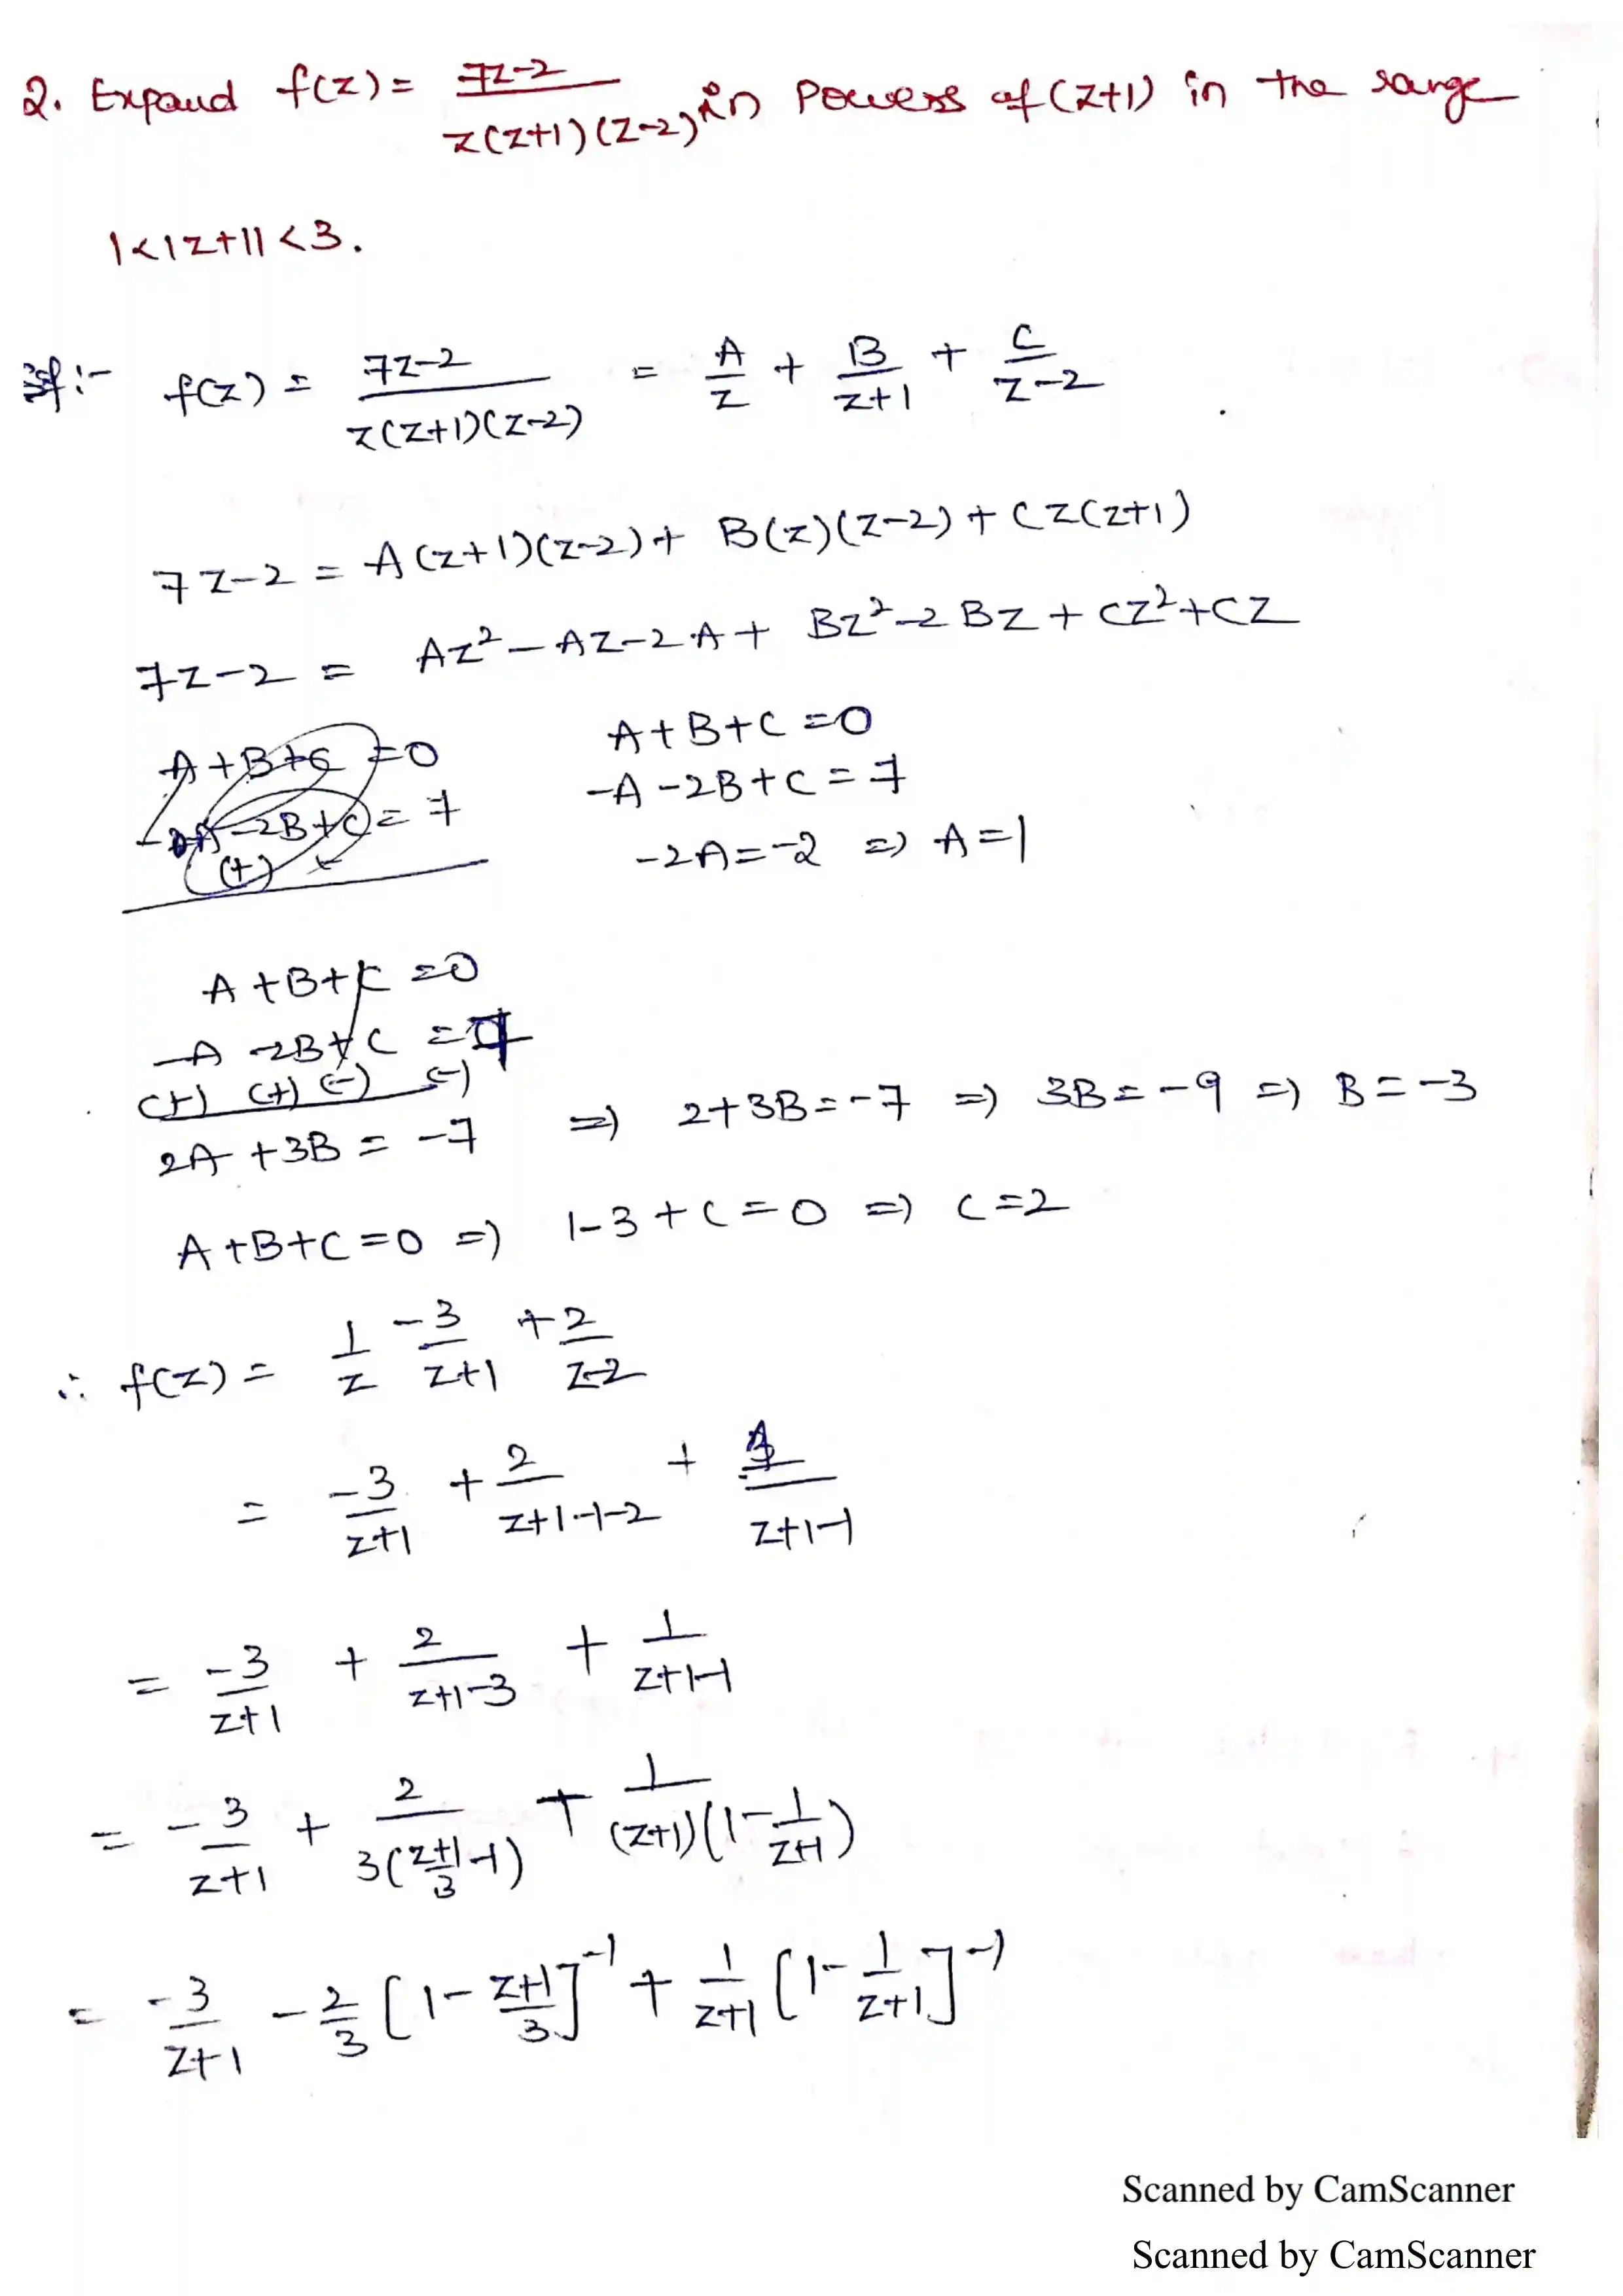 2. Expand f(z) = 7z-2 / z(z+1)(z-2) in powers of (z+1) in the range
1<|z+1|<3.
Sol:- f(z) = 7z-2 / z(z+1)(z-2) = A/z + B/z+1 + C/z-2
7z-2 = A(z+1)(z-2) + B(z)(z-2) + Cz(z+1)
7z-2 = Az² - Az - 2A + Bz² - 2Bz + Cz² + Cz
A+B+C=0 A+B+C=0
-2B+C=7 -A-2B+C=7
(+) -2A=-2 => A=1
A+B+C=0
-A-2B+C=7
(+) (+) (-) (-)
2A+3B=-7 => 2+3B=-7 => 3B=-9 => B=-3
A+B+C=0 => 1-3+C=0 => C=2
∴ f(z) = 1/z -3/z+1 +2/z-2
= -3/z+1 + 2/z+1-1-2 + 1/z+1-1
= -3/z+1 + 2/z+1-3 + 1/z+1-1
= -3/z+1 + 2/3(z+1/3-1) + 1/(z+1)(1-1/z+1)
= -3/z+1 - 2/3 [1 - z+1/3]⁻¹ + 1/z+1 [1 - 1/z+1]⁻¹
Scanned by CamScanner
Scanned by CamScanner